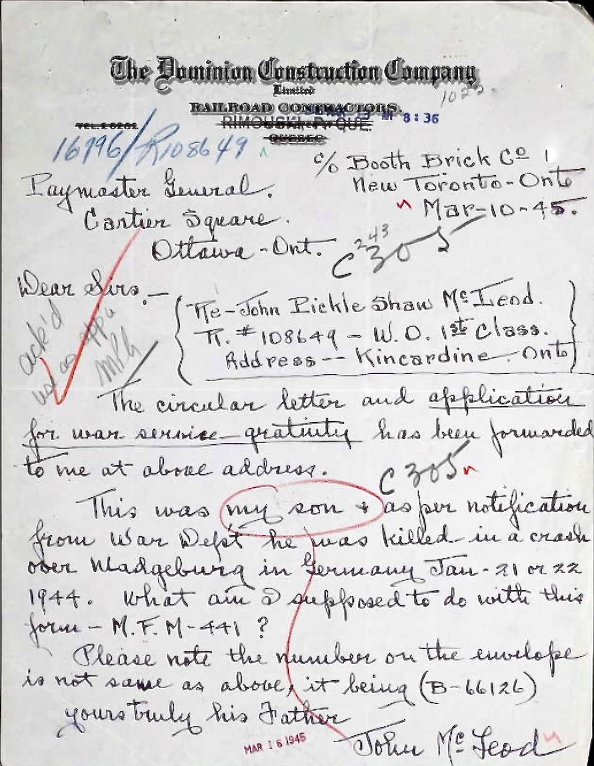 The Dominion Construction Company
Limited
RAILROAD CONTRACTORS.
RIMOUSKI, P. QUE.
8:36
QUEBEC
16796/R108649
c/o Booth Brick Co
New Toronto-Ont
Mar-10-45.
Paymaster General.
Cartier Square.
Ottawa-Ont.
C 305
243
Dear Sirs.-
Re-John Pickle Shaw McLeod.
R.#108649-W.O. 1st Class.
Address-- Kincardine. Ont
ack'd
The circular letter and application
for war service-gratuity has been forwarded
to me at above address.
C 305
This was my son & as per notification
from War Dep't he was killed-in a crash
over Madgeburg in Germany Jan-21 or 22
1944. What am I supposed to do with this
form-M.F.M-441?
Please note the number on the envelope
is not same as above, it being (B-66126)
yours truly his Father
John McLeod
MAR 16 1945